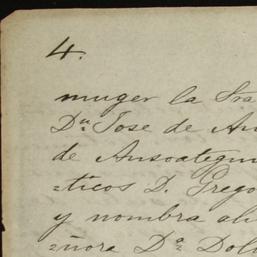 4.
muger la Sra
Dn Jose de An
de Ansoategui
=ticos D. Grego
y nombra alu
=ñora Da Dol